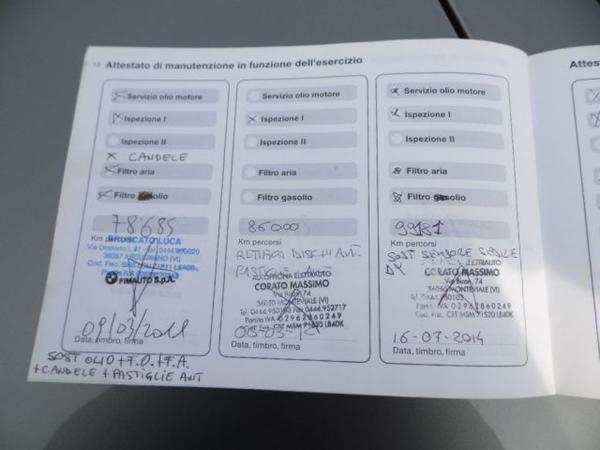 12 Attestato di manutenzione in funzione dell'esercizio
Servizio olio motore
Ispezione I
Ispezione II
X CANDELE
Filtro aria
Filtro gasolio
78685
Km percorsi
BRUSCATO LUCA
36057 ARCUGNANO (VI)
FIMAUTO S.p.A.
09/03/2011
Data, timbro, firma
SOST OLIO + F.O. + F.A.
+ CANDELE + PASTIGLIE ANT
Servizio olio motore
Ispezione I
Ispezione II
Filtro aria
Filtro gasolio
86000
Km percorsi
RETIFICA DISCHI ANT.
PASTIGLIE ANT
AUTOFFICINA ELETTRAUTO
CORATO MASSIMO
Via Biron, 74
36050 MONTEVIALE (VI)
Tel. 0444.950103 Fax 0444.952717
Partita IVA 02962860249
Cod. Fisc. CRT MGM 71S20 L840K
Data, timbro, firma
Servizio olio motore
Ispezione I
Ispezione II
Filtro aria
Filtro gasolio
99181
Km percorsi
SOST SENSORE SEDILE
ELETTRAUTO
CORATO MASSIMO
Via Biron, 74
36050 MONTEVIALE (VI)
Partita IVA 02962860249
Cod. Fisc. CRT MGM 71S20 L840K
16-07-2014
Data, timbro, firma
Attes